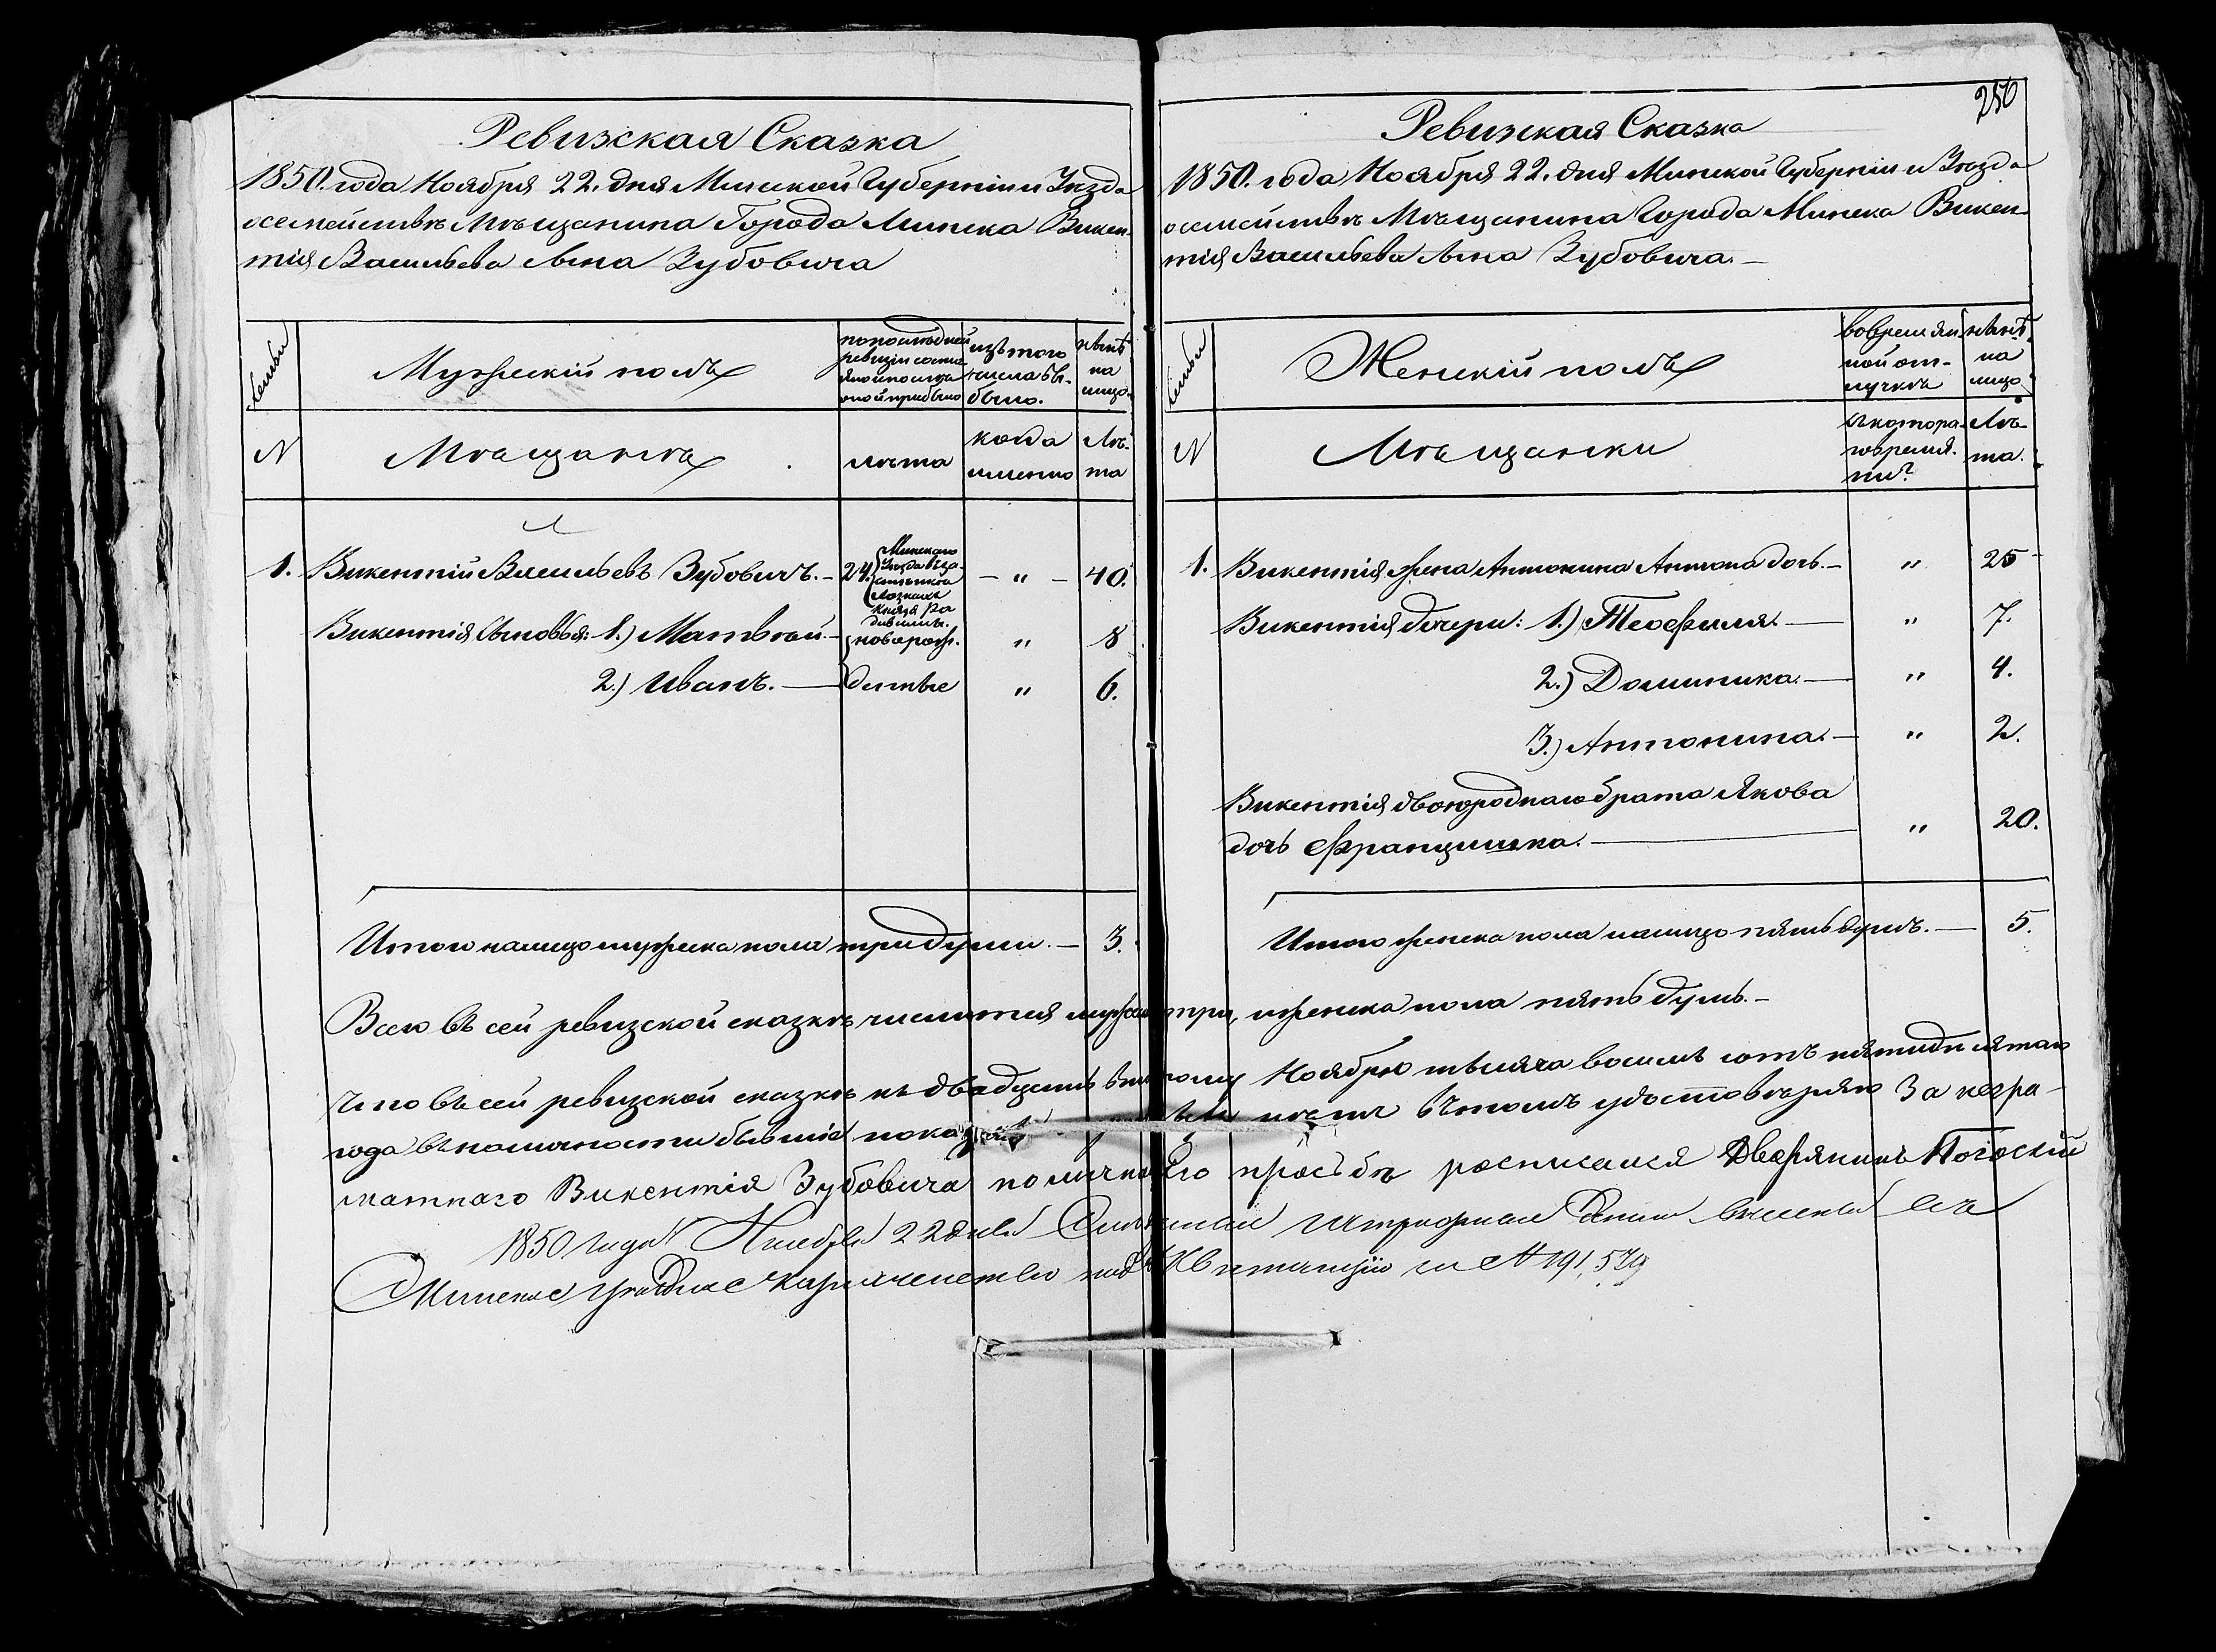 Ревизская Сказка
1850. года Ноября 22. дня Минской Губерніи и Уезда
о семействѣ Мѣщанина Города Минска Викен-
тія Васильева сына Зубовича
семьи
Мужескій полъ
по последней
ревизіи состо
яло и после
оной прибыло
изъ того
числа вы-
было.
нынѣ
на
лицо.
N
Мѣщанѣ
лѣта
когда
именно
Лѣ-
та
1. Викентій Васильевъ Зубовичъ. – 24. – " – 40.
Минскаго
Уезда
Князя Ра
Викентія сыновья: 1.) Матвѣй. – новорож. " 8
2.) Иванъ. — денные " 6.
Итого налицо мужеска пола три души. – 3.
250
Ревизкая Сказка
1850. года Ноября 22. дня Минской Губерніи и Уезда
о семействѣ Мѣщанина Города Минска Викен-
тія Васильева сына Зубовича. –
семьи
Женскій полъ
во времян-
ной от-
лучкѣ
нынѣ
на
лицо
N
Мѣщанки
съ котора-
го време-
ни?
Лѣ-
та.
1. Викентія жена Антонина Антона дочь. – " 25
Викентія дочери: 1.) Теофиля. — " 7.
2.) Доминика. — " 4.
3.) Антонина. — " 2.
Викентія двоюроднаго брата Якова
дочь Францишка. — " 20.
Итого женска пола налицо пять душъ. — 5.
Всего въ сей ревизской сказкѣ числится мужеска три, и женска пола пять душъ. –
Что въ сей ревизской сказкѣ къ двадцать второму Ноябрю тысяча восемь сотъ пятидесятаго
года въ наличности бывшіе показаны въ томъ удостовѣряю За негра-
матнаго Викентія Зубовича по личной Его просьбѣ росписался Дворянинъ
1850 года Ноября 22 дня
Минское уездное казначейство под Квитанцію за № 191,529